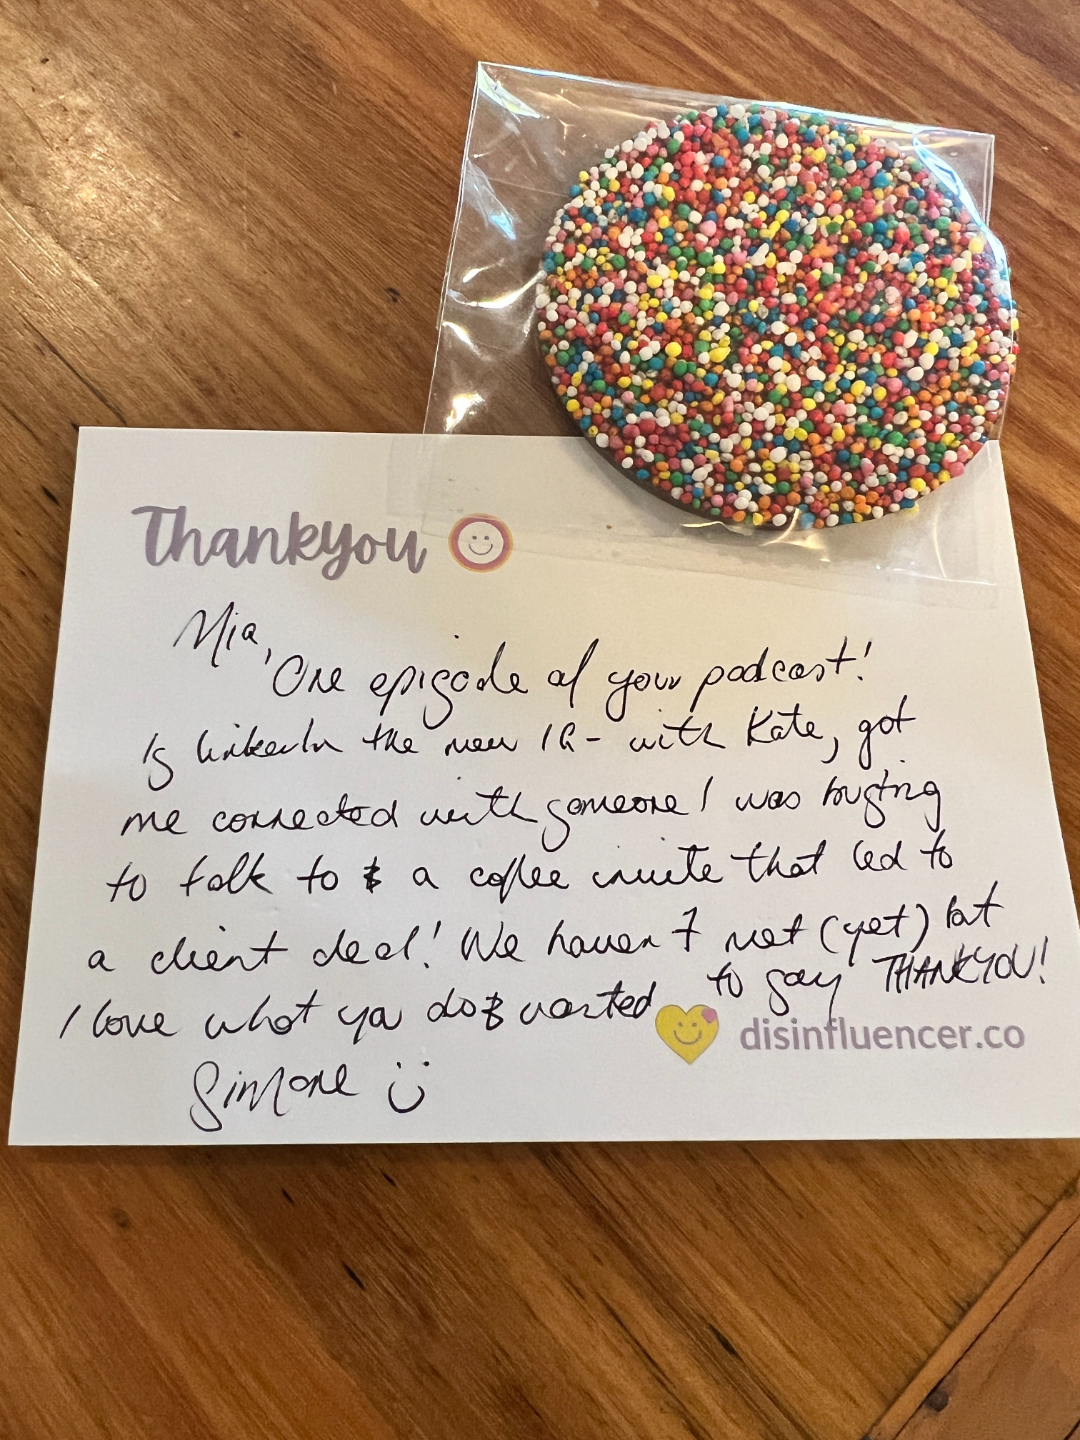 Thankyou
Mia,
One episode of your podcast!
Is linkedIn the new IG - with Kate, got
me connected with someone I was busting
to talk to & a coffee invite that led to
a client deal! We haven't met (yet) but
I love what ya do & wanted to say THANKYOU!
disinfluencer.co
Simone